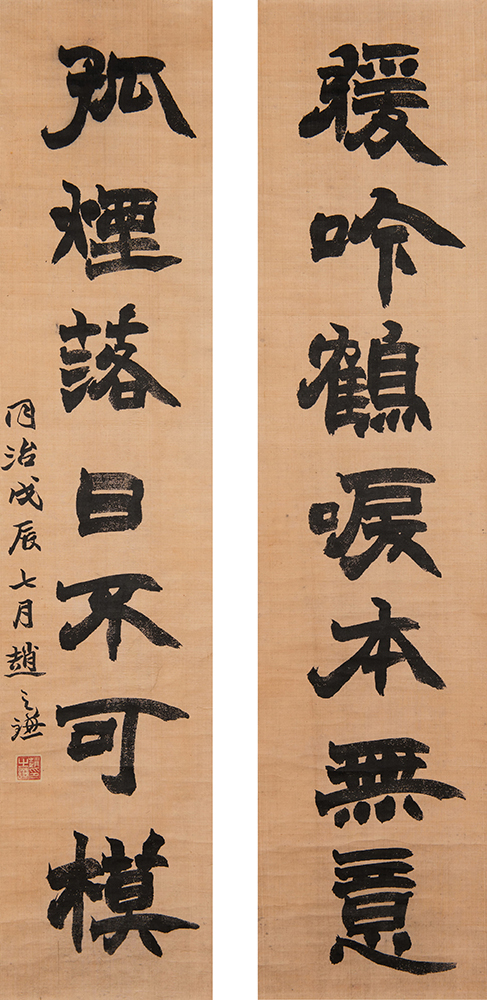 猨吟鶴唳本無意
孤煙落日不可模
同治戊辰七月趙之謙